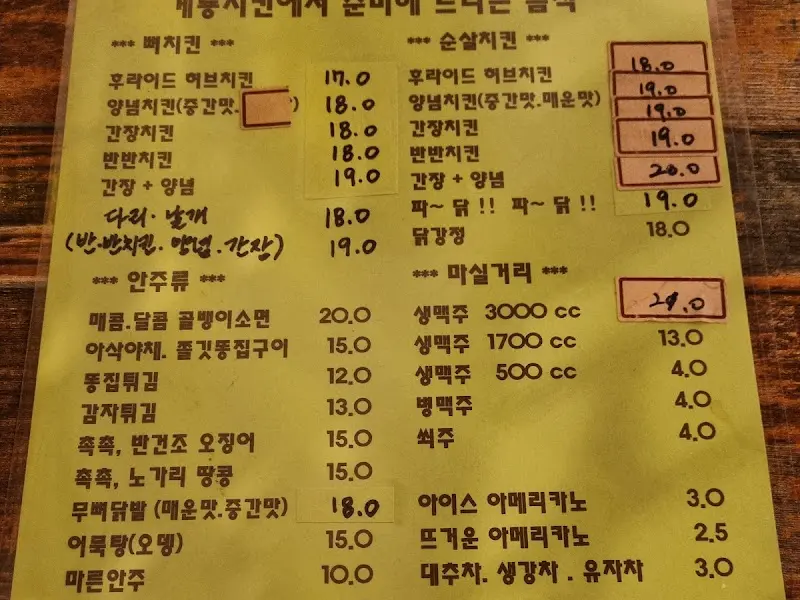 에서 준비해 드리는 음식
*** 뼈치킨 ***
후라이드 허브치킨 17.0
양념치킨(중간맛. ) 18.0
간장치킨 18.0
반반치킨 18.0
간장 + 양념 19.0
다리·날개 18.0
(반·반치킨·양념·간장) 19.0
*** 안주류 ***
매콤.달콤 골뱅이소면 20.0
아삭야채. 쫄깃똥집구이 15.0
똥집튀김 12.0
감자튀김 13.0
촉촉, 반건조 오징어 15.0
촉촉, 노가리 땅콩 15.0
무뼈닭발 (매운맛.중간맛) 18.0
어묵탕(오뎅) 15.0
마른안주 10.0
*** 순살치킨 ***
후라이드 허브치킨 18.0
양념치킨(중간맛.매운맛) 19.0
간장치킨 19.0
반반치킨 19.0
간장 + 양념 20.0
파~ 닭 !! 파~ 닭 !! 19.0
닭강정 18.0
*** 마실거리 ***
생맥주 3000 cc
생맥주 1700 cc 13.0
생맥주 500 cc 4.0
병맥주 4.0
쐬주 4.0
아이스 아메리카노 3.0
뜨거운 아메리카노 2.5
대추차. 생강차 . 유자차 3.0